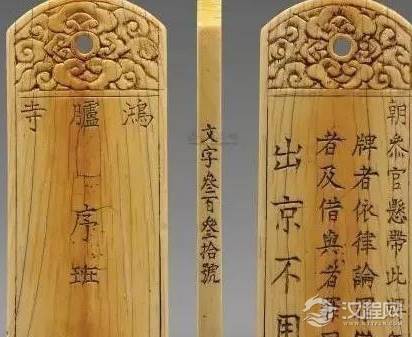 鴻臚寺
序班
文字叄百叄拾號
朝叅官懸帶此
牌者依律論
者及借與者
出京不用
汉程网